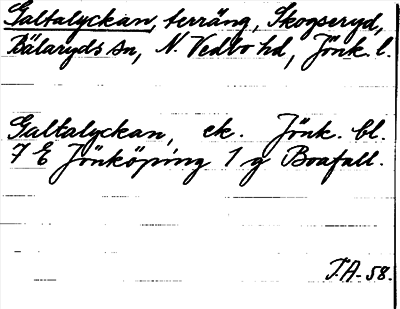 Galtalyckan, terräng, Skogseryd,
Bälaryds sn, N. Vedbo hd, Jönk. l.
Galtalyckan, ek. Jönk. bl.
7 E Jönköping 1 g Boafall.
T.A. 58.